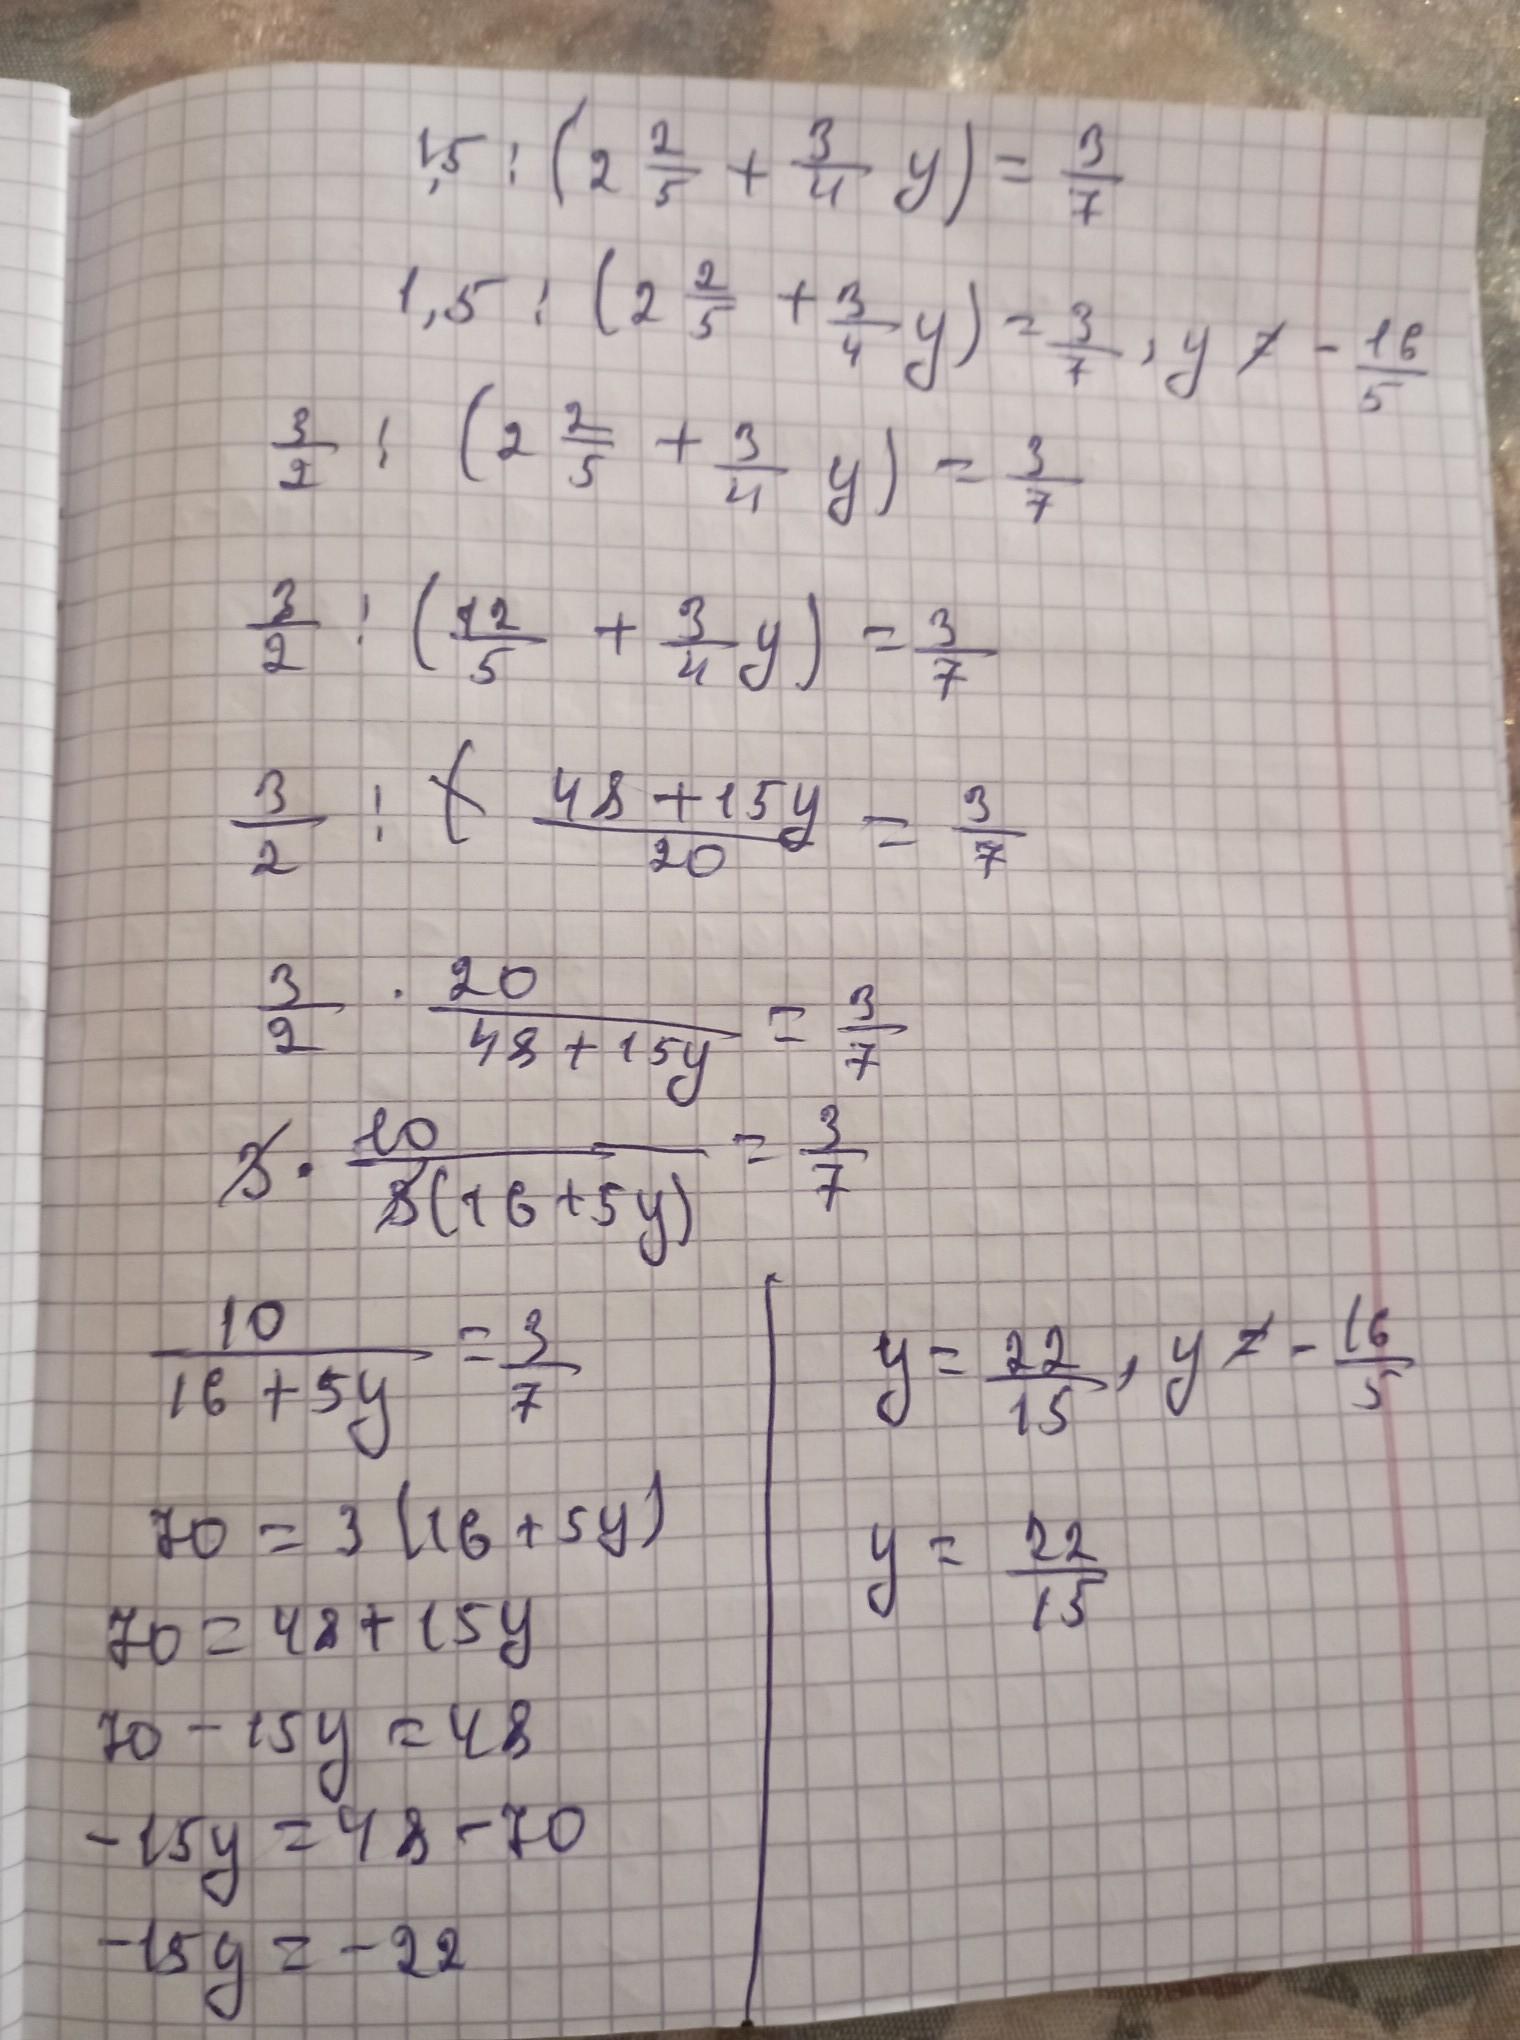 1,5 : (2 2/5 + 3/4 y) = 3/7
1,5 : (2 2/5 + 3/4 y) = 3/7, y ≠ - 16/5
3/2 : (2 2/5 + 3/4 y) = 3/7
3/2 : (12/5 + 3/4 y) = 3/7
3/2 : (48+15y)/20 = 3/7
3/2 · 20/(48+15y) = 3/7
3 · 10/(3(16+5y)) = 3/7
10/(16+5y) = 3/7
70 = 3(16+5y)
70 = 48+15y
70 - 15y = 48
-15y = 48 - 70
-15y = -22
y = 22/15, y ≠ - 16/5
y = 22/15